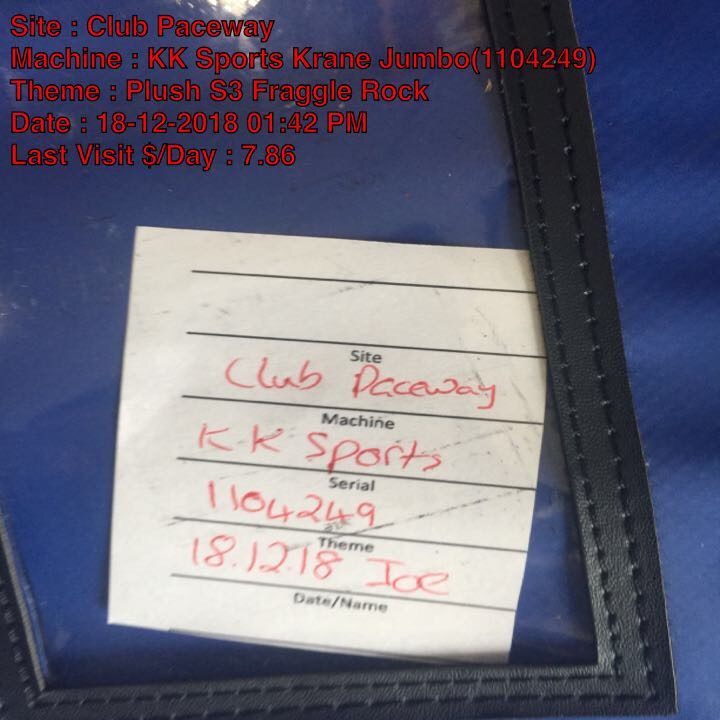 Site : Club Paceway
Machine : KK Sports Krane Jumbo(1104249)
Theme : Plush S3 Fraggle Rock
Date : 18-12-2018 01:42 PM
Last Visit $/Day : 7.86
Site
Club Paceway
Machine
KK Sports
Serial
1104249
Theme
18.12.18 Joe
Date/Name